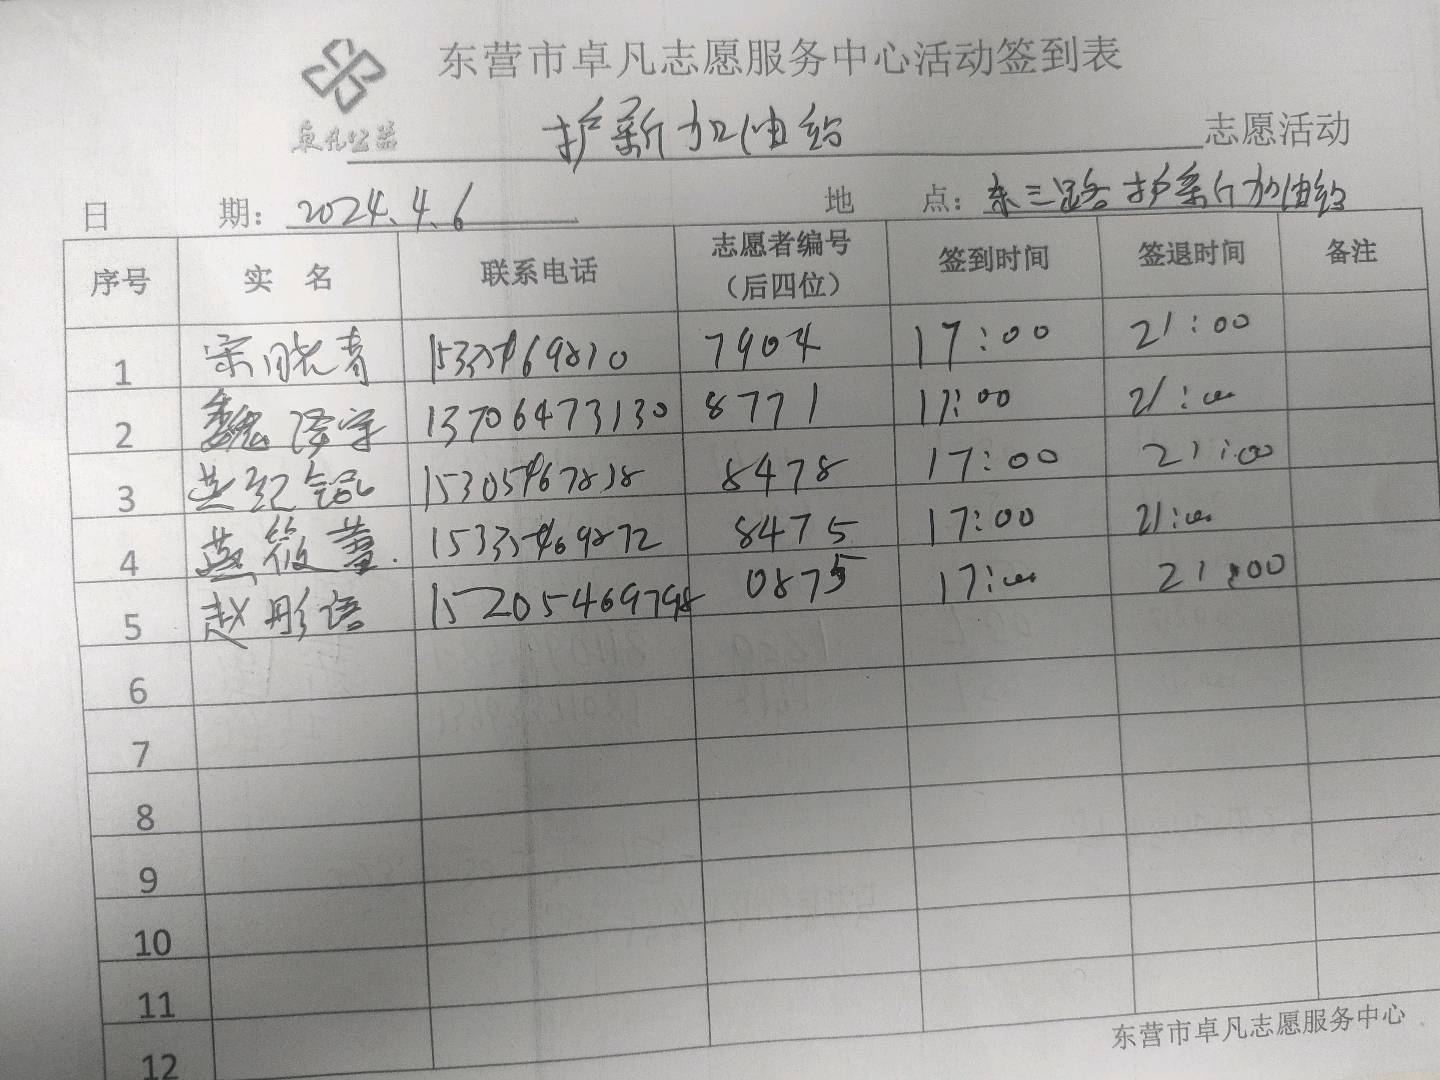 东营市卓凡志愿服务中心活动签到表
卓凡公益
护新加油站 志愿活动
日 期：2024.4.6 地 点：东三路护新加油站
序号 实 名 联系电话 志愿者编号（后四位） 签到时间 签退时间 备注
1 宋晓青 15335469810 7904 17:00 21:00
2 魏泽宇 13706473130 8771 17:00 21:00
3 15305467838 8478 17:00 21:00
4 燕筱蕾 15335469872 8475 17:00 21:00
5 赵彤语 15205469798 0875 17:00 21:00
6
7
8
9
10
11
12
东营市卓凡志愿服务中心